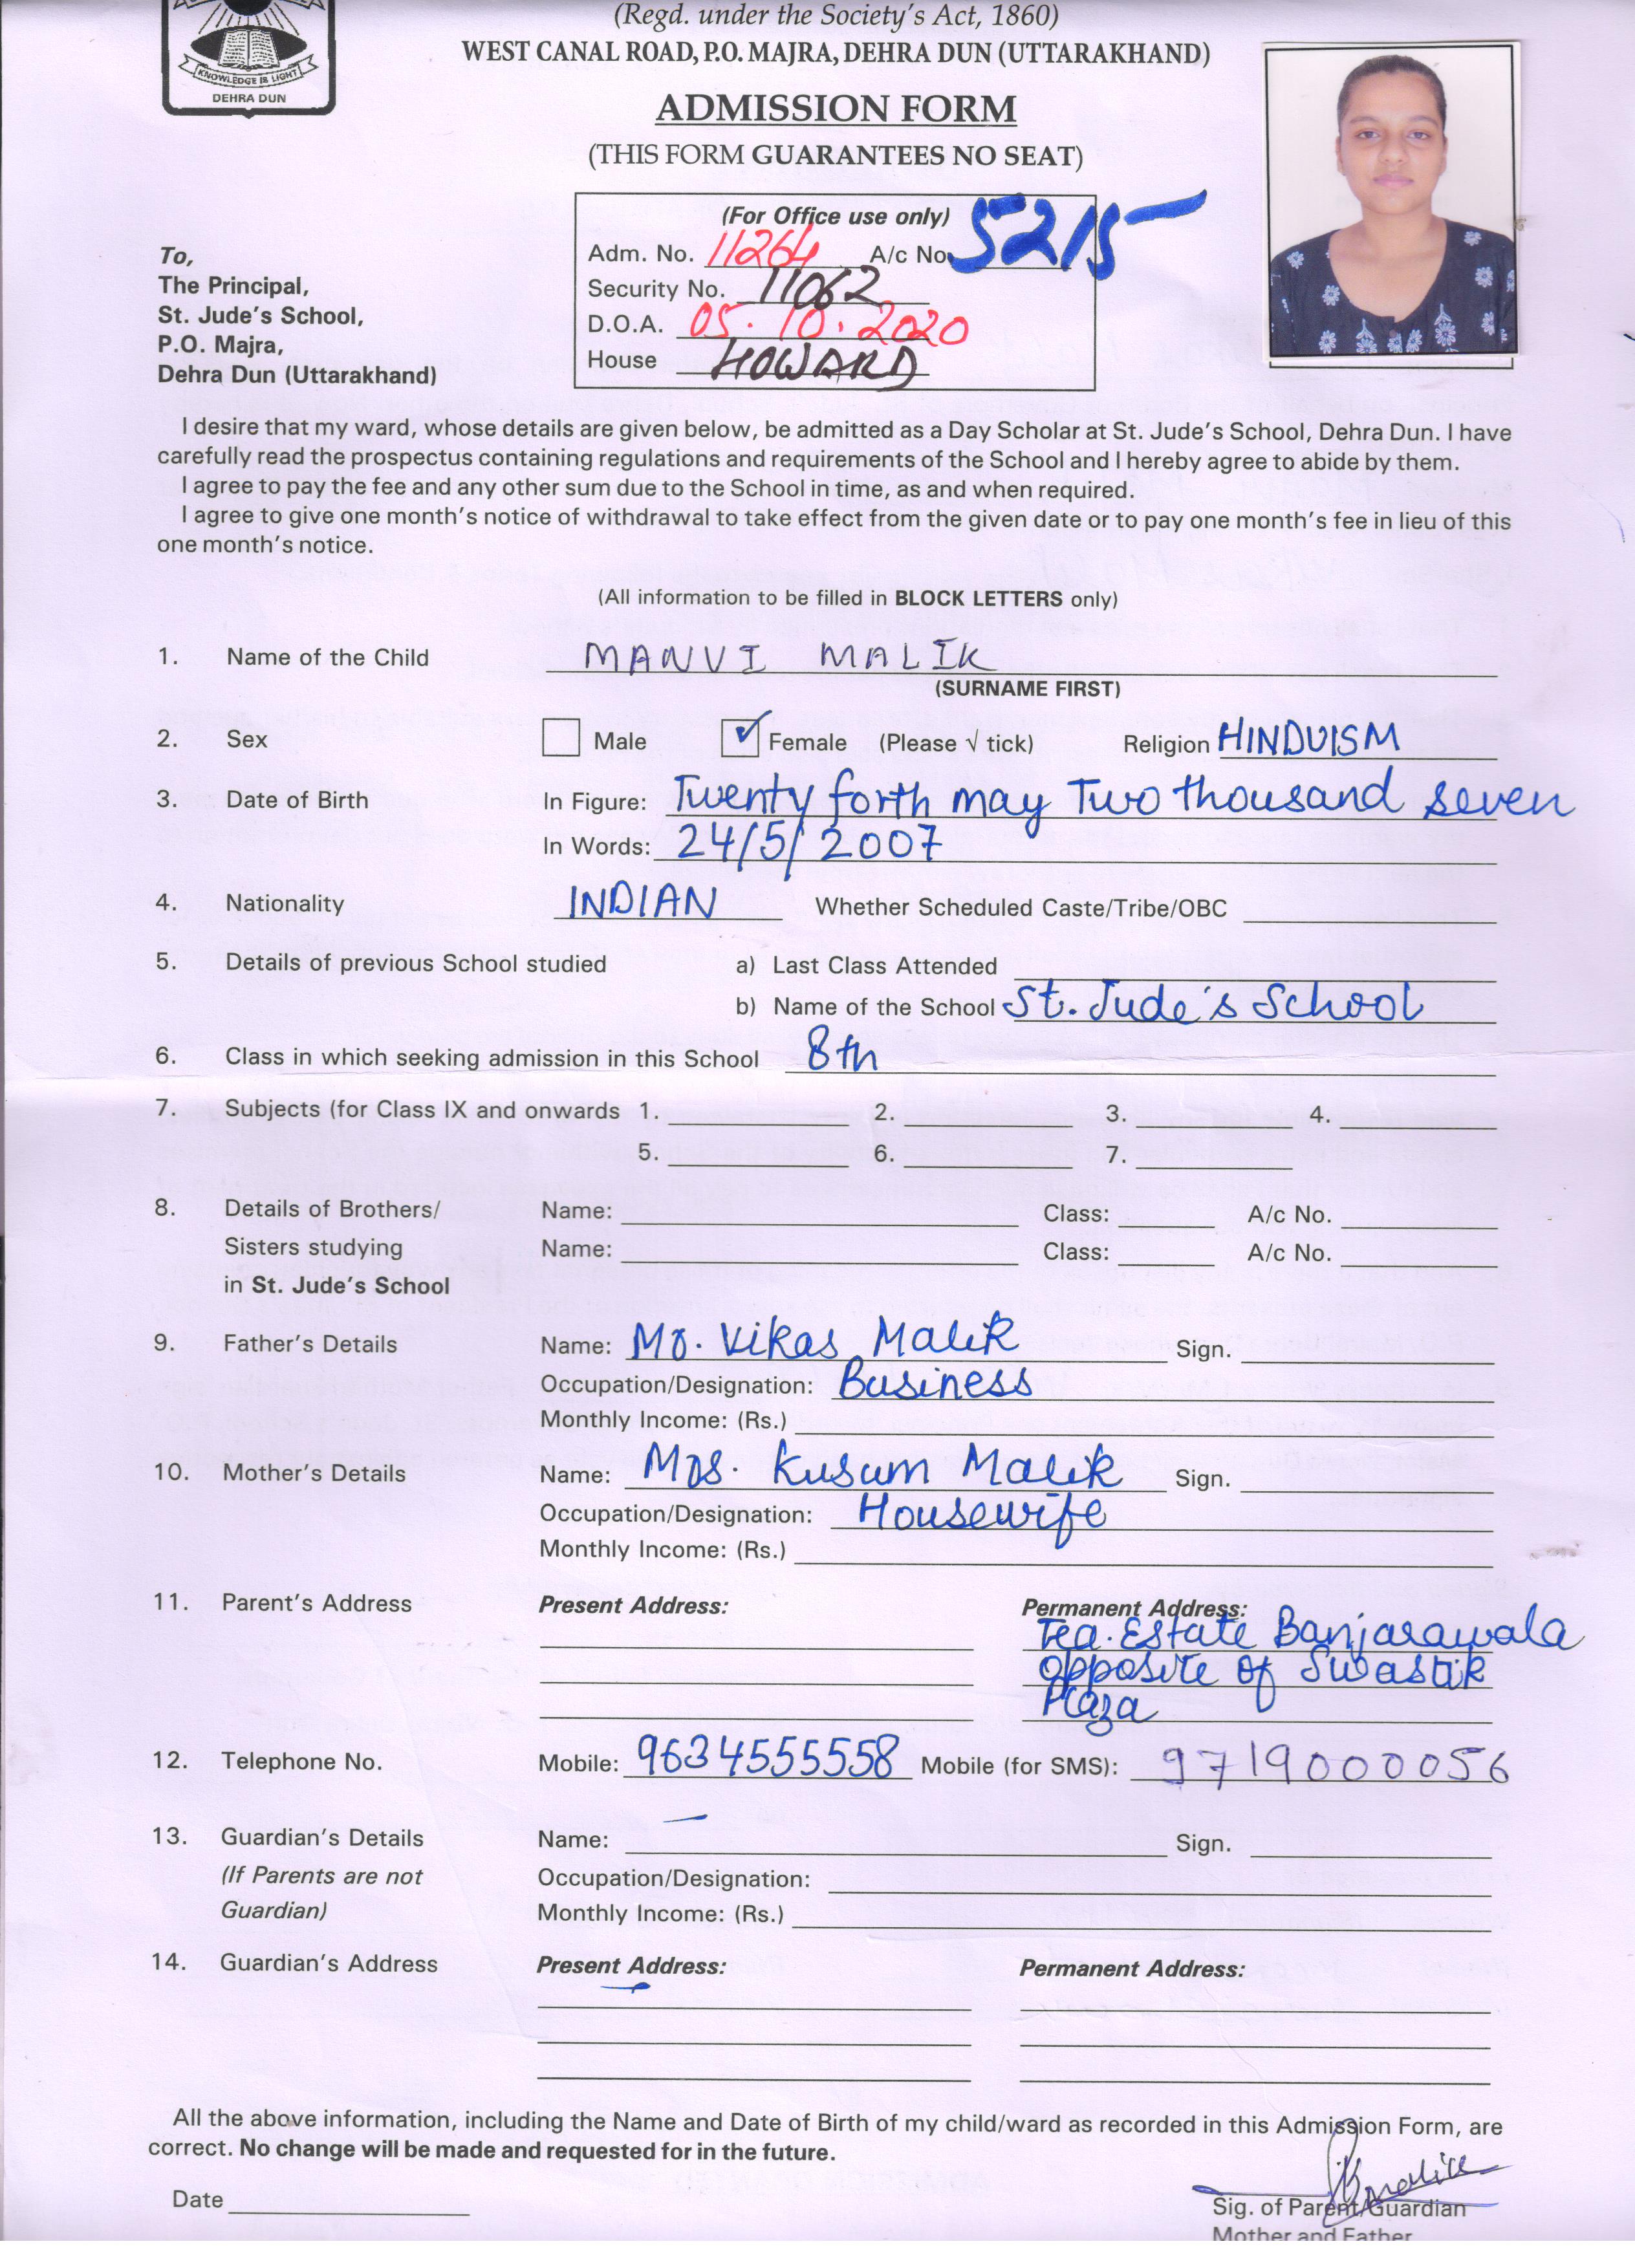 KNOWLEDGE IS LIGHT
DEHRA DUN
(Regd. under the Society's Act, 1860)
WEST CANAL ROAD, P.O. MAJRA, DEHRA DUN (UTTARAKHAND)
ADMISSION FORM
(THIS FORM GUARANTEES NO SEAT)
(For Office use only)
Adm. No. 11264 A/c No. 5215
Security No. 11062
D.O.A. 05.10.2020
House HOWARD
To,
The Principal,
St. Jude's School,
P.O. Majra,
Dehra Dun (Uttarakhand)
I desire that my ward, whose details are given below, be admitted as a Day Scholar at St. Jude's School, Dehra Dun. I have
carefully read the prospectus containing regulations and requirements of the School and I hereby agree to abide by them.
I agree to pay the fee and any other sum due to the School in time, as and when required.
I agree to give one month's notice of withdrawal to take effect from the given date or to pay one month's fee in lieu of this
one month's notice.
(All information to be filled in BLOCK LETTERS only)
1. Name of the Child MANVI MALIK
(SURNAME FIRST)
2. Sex Male Female (Please √ tick) Religion HINDUISM
3. Date of Birth In Figure: Twenty forth may Two thousand seven
In Words: 24/5/2007
4. Nationality INDIAN Whether Scheduled Caste/Tribe/OBC
5. Details of previous School studied a) Last Class Attended
b) Name of the School St. Jude's School
6. Class in which seeking admission in this School 8th
7. Subjects (for Class IX and onwards 1. 2. 3. 4.
5. 6. 7.
8. Details of Brothers/ Name: Class: A/c No.
Sisters studying Name: Class: A/c No.
in St. Jude's School
9. Father's Details Name: Mr. Vikas Malik Sign.
Occupation/Designation: Business
Monthly Income: (Rs.)
10. Mother's Details Name: Mrs. Kusum Malik Sign.
Occupation/Designation: Housewife
Monthly Income: (Rs.)
11. Parent's Address Present Address: Permanent Address:
Tea. Estate Banjarawala
opposite of Swastik
Plaza
12. Telephone No. Mobile: 9634555558 Mobile (for SMS): 9719000056
13. Guardian's Details Name: Sign.
(If Parents are not Occupation/Designation:
Guardian) Monthly Income: (Rs.)
14. Guardian's Address Present Address: Permanent Address:
All the above information, including the Name and Date of Birth of my child/ward as recorded in this Admission Form, are
correct. No change will be made and requested for in the future.
Date
Sig. of Parent/Guardian
Mother and Father